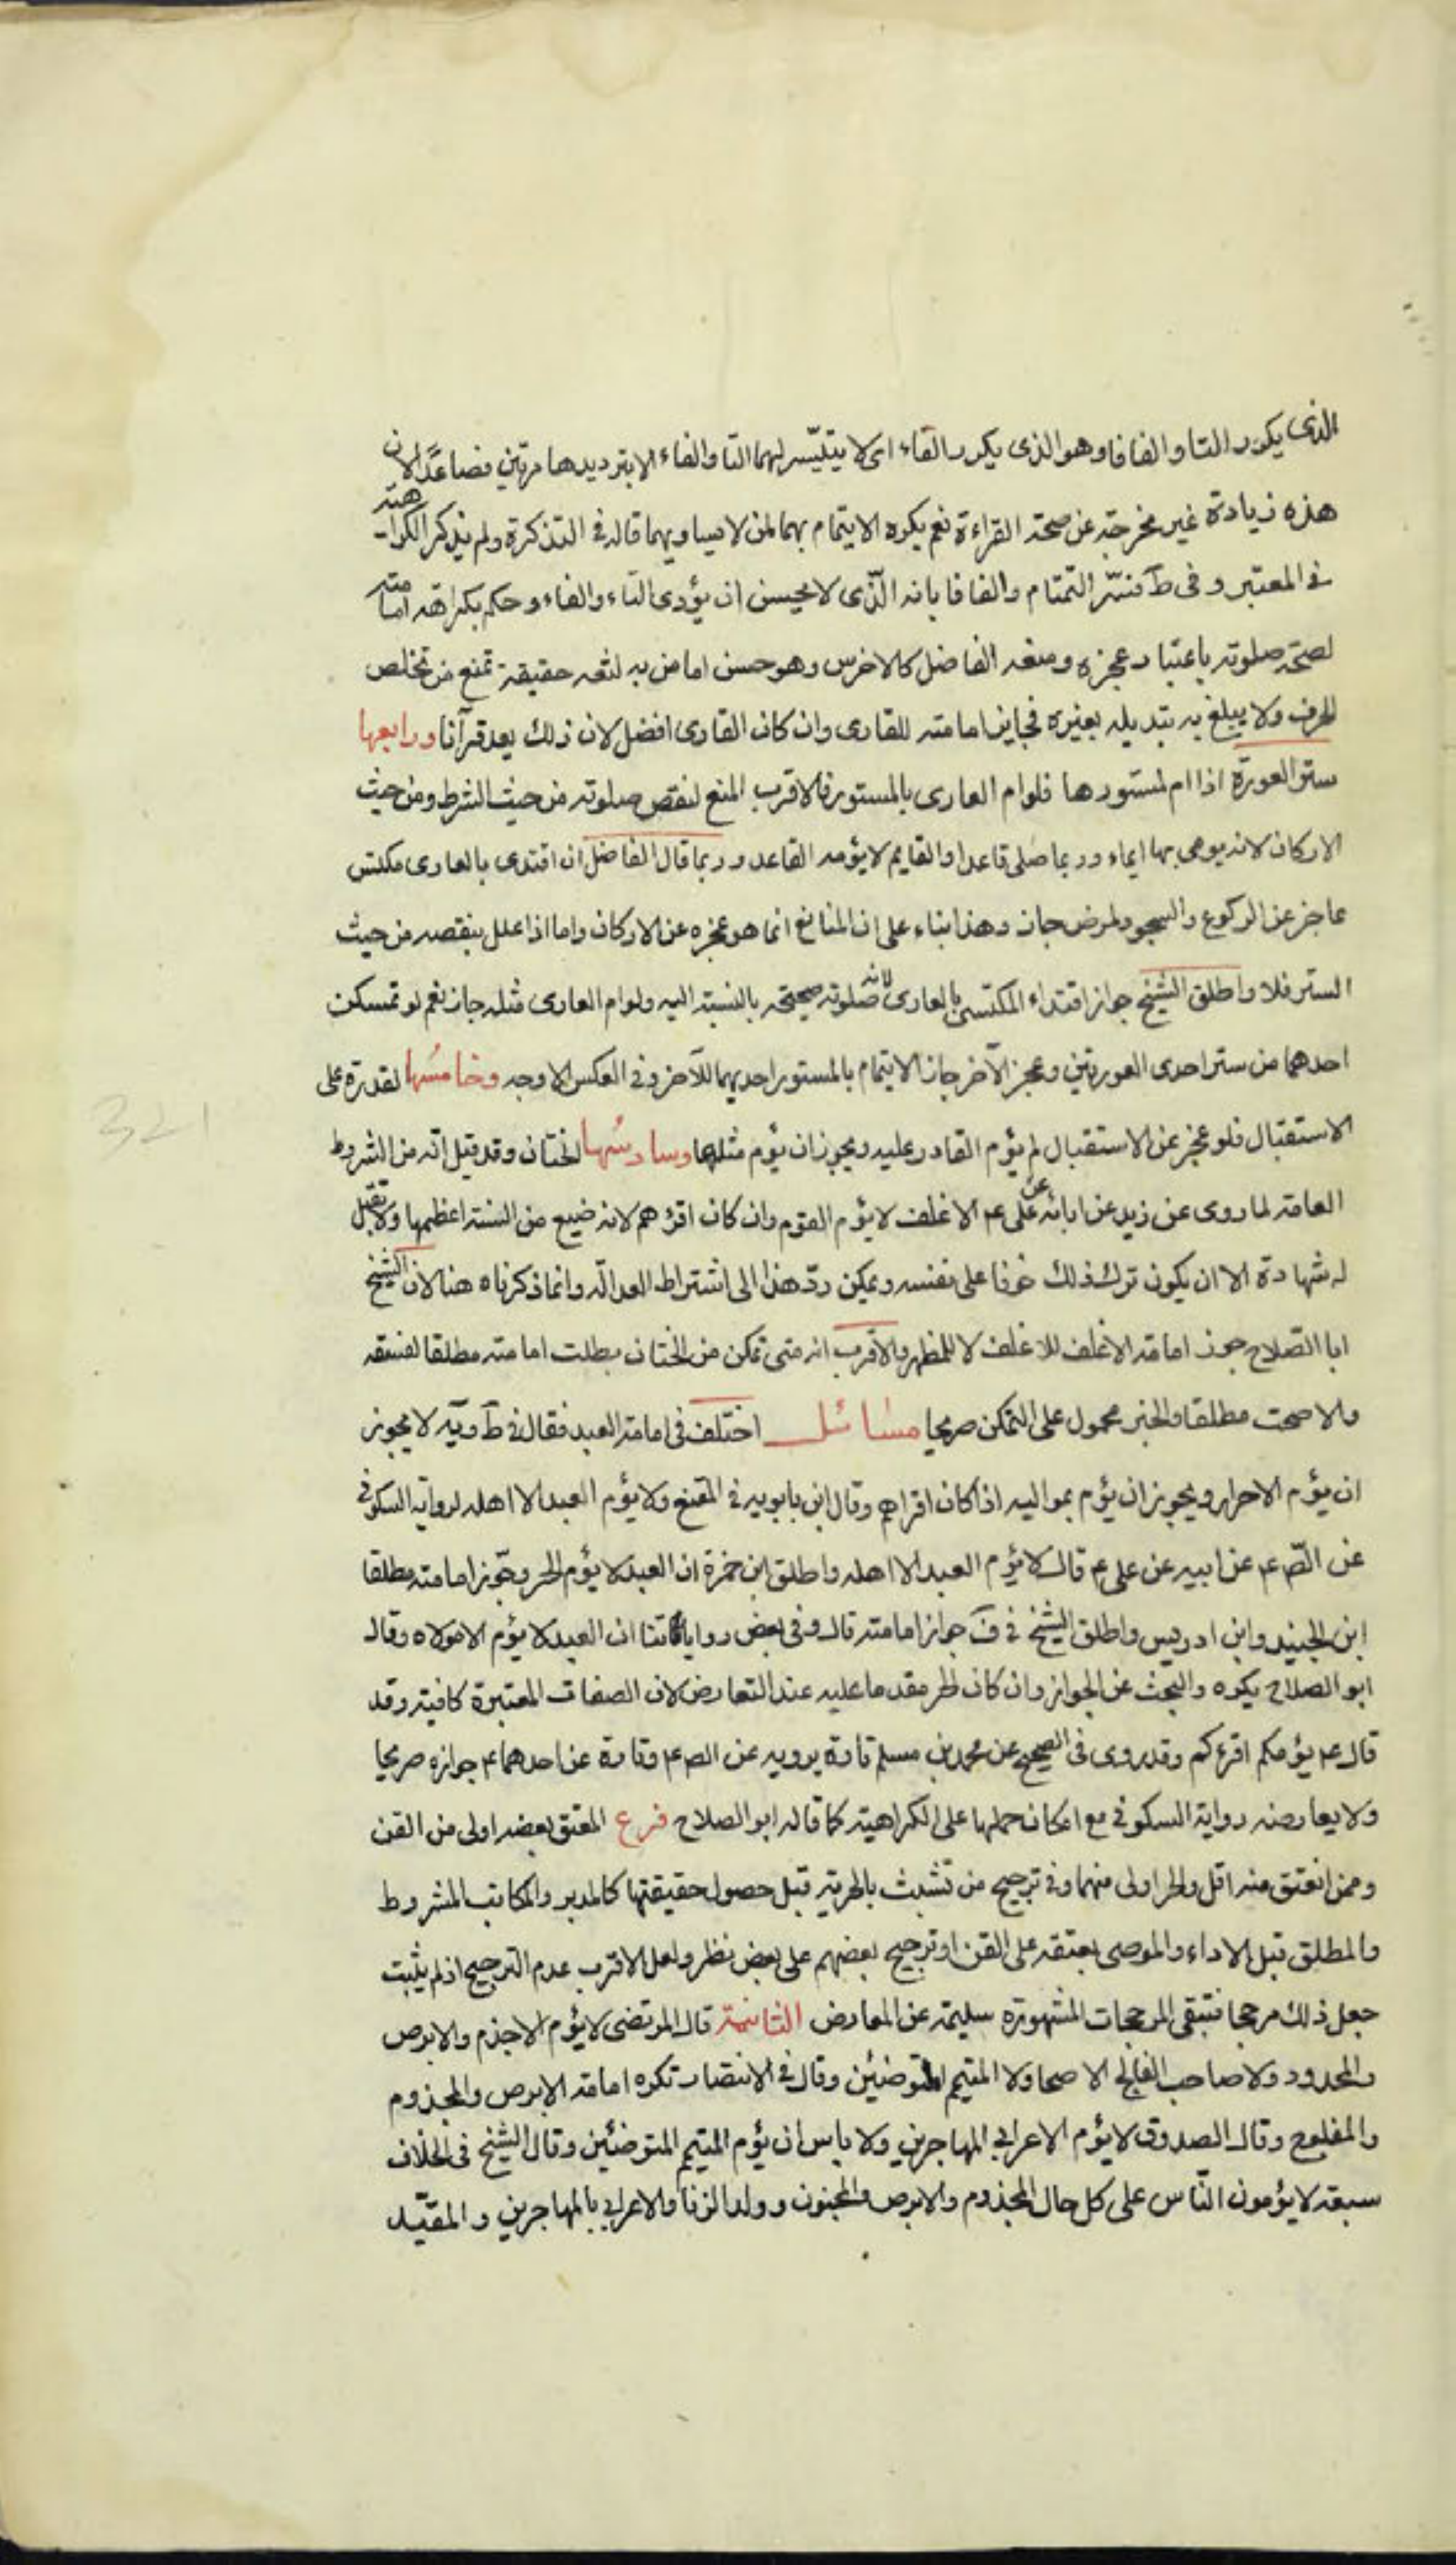 الذى يكرر التا والفافا وهو الذى يكرر الفاء اى لا يتيسر لهما التا والفاء الا بترديدها مرتين فصاعدًا لان
هذه زيادة غير مخرجة عن صحة القراءة نعم يكره الايتمام بهما لمن لا يساويهما قاله فى التذكرة ولم يذكر الكراهته
فى المعتبر و فى ط فسّر التمتام والفافا بانه الّذى لا يحسن ان يؤدى التاء والفاء و حكم بكراهة امامته
لصحة صلوته باعتبار عجزه ومنعه الفاضل كالاخرس وهو حسن اما من به لثغه حقيقة تمنع من تخلص
الحرف ولا يبلغ به بتديله بغيره فجايز امامته للقارى وان كان القارى افضل لان ذلك يعد قرآنا ورابعها
ستر العورة اذا ام لمستورها فلو ام العارى بالمستور فالاقرب المنع لنقص صلوته من حيث الشرط ومن حيث
الاركان لانه يومى بها ايماء و ربما صلى قاعدا والقايم لا يؤمه القاعد و ربما قال الفاضل ان اقتدى بالعارى مكتس
عاجز عن الركوع والسجود لمرض جاز وهذا بناء على ان المانع انما هو عجزه عن الاركان واما اذا علل بنقصه من حيث
الستر فلا واطلق الشيخ جواز اقتداء المكتسى بالعارى لان صلوته صحيحة بالنسبة اليه ولو ام العارى مثله جاز نعم لو تمسكن
احدهما من ستر احدى العورتين وعجز الآخر جاز الايتمام بالمستور احديهما للآخر و فى العكس الاوجه وخامسها القدرة على
الاستقبال فلو عجز عن الاستقبال لم يؤم القادر عليه ويجوز ان يؤم مثلهما وسادسها الختان وقد قيل انه من الشروط
العامة لما روى عن زيد عن ابائه عن على ع م الاغلف لا يؤم القوم وان كان اقرؤهم لانه ضيع من السنة اعظمها ولا تقبل
له شهادة الا ان يكون ترك ذلك خوفا على نفسه ويمكن ردّ هذا الى اشتراط العدالة وانما ذكرناه هنا لان الشيخ
ابا الصلاح جوز امامة الاغلف للاغلف لا للمطهر والاقرب انه متى تمكن من الختان بطلت امامته مطلقا لفسقه
والا صحت مطلقا والخبر محمول على التمكن صريحا مسائل اختلف فى امامة العبد فقال فى ط و يه لا يجوز
ان يؤم الاحرار ويجوز ان يؤم بمواليه اذا كان اقراهم وقال ابن بابويه فى المقنع ولا يؤم العبد الا اهله لرواية السكونى
عن الصّ ع م عن ابيه عن على ع م قال لا يؤم العبد الا اهله واطلق ابن حمزة ان العبد لا يؤم الحر وجّوز امامته مطلقا
ابن الجنيد وابن ادريس واطلق الشيخ فى ف جواز امامته قال وفى بعض رواياتنا ان العبد لا يؤم الا مولاه وقال
ابو الصلاح يكره والبحث عن الجواز وان كان الحر مقدما عليه عند التعارض لان الصفات المعتبرة كافية وقد
قال ع م يؤمكم اقرءكم وقد روى فى الصحيح عن محمد بن مسلم تارة يرويه عن الص ع م وتارة عن احدهما ع م جوازه صريحا
ولا يعارضه رواية السكونى مع امكان حملها على الكراهية كما قاله ابو الصلاح فرع المعتق بعضه اولى من القن
وممن انعتق منه اقل والحر اولى منهما وفى ترجيح من تشبث بالحرية قبل حصول حقيقتها كالمدبر والمكاتب المشروط
والمطلق قبل الاداء والموصى بعتقه على القن او ترجيح بعضهم على بعض نظر ولعل الاقرب عدم الترجيح اذ لم يثبت
جعل ذلك مرجحا فتبقى المرجحات المشهورة سليمة عن المعارض الثانية قال المرتضى لا يؤم الاجذم والابرص
والمحدود ولا صاحب الفالج الاصحا ولا المتيمم المتوضئين وقال فى الانتصار تكره امامة الابرص والمجذوم
والمفلوج وقال الصدوق لا يؤم الاعرابى المهاجرين ولا باس ان يؤم المتيمم المتوضئين وقال الشيخ فى الخلاف
سبعه لا يؤمون النّاس على كل حال المجذوم والابرص والمجنون وولد الزنا والاعرابى بالمهاجرين والمقيّد
321